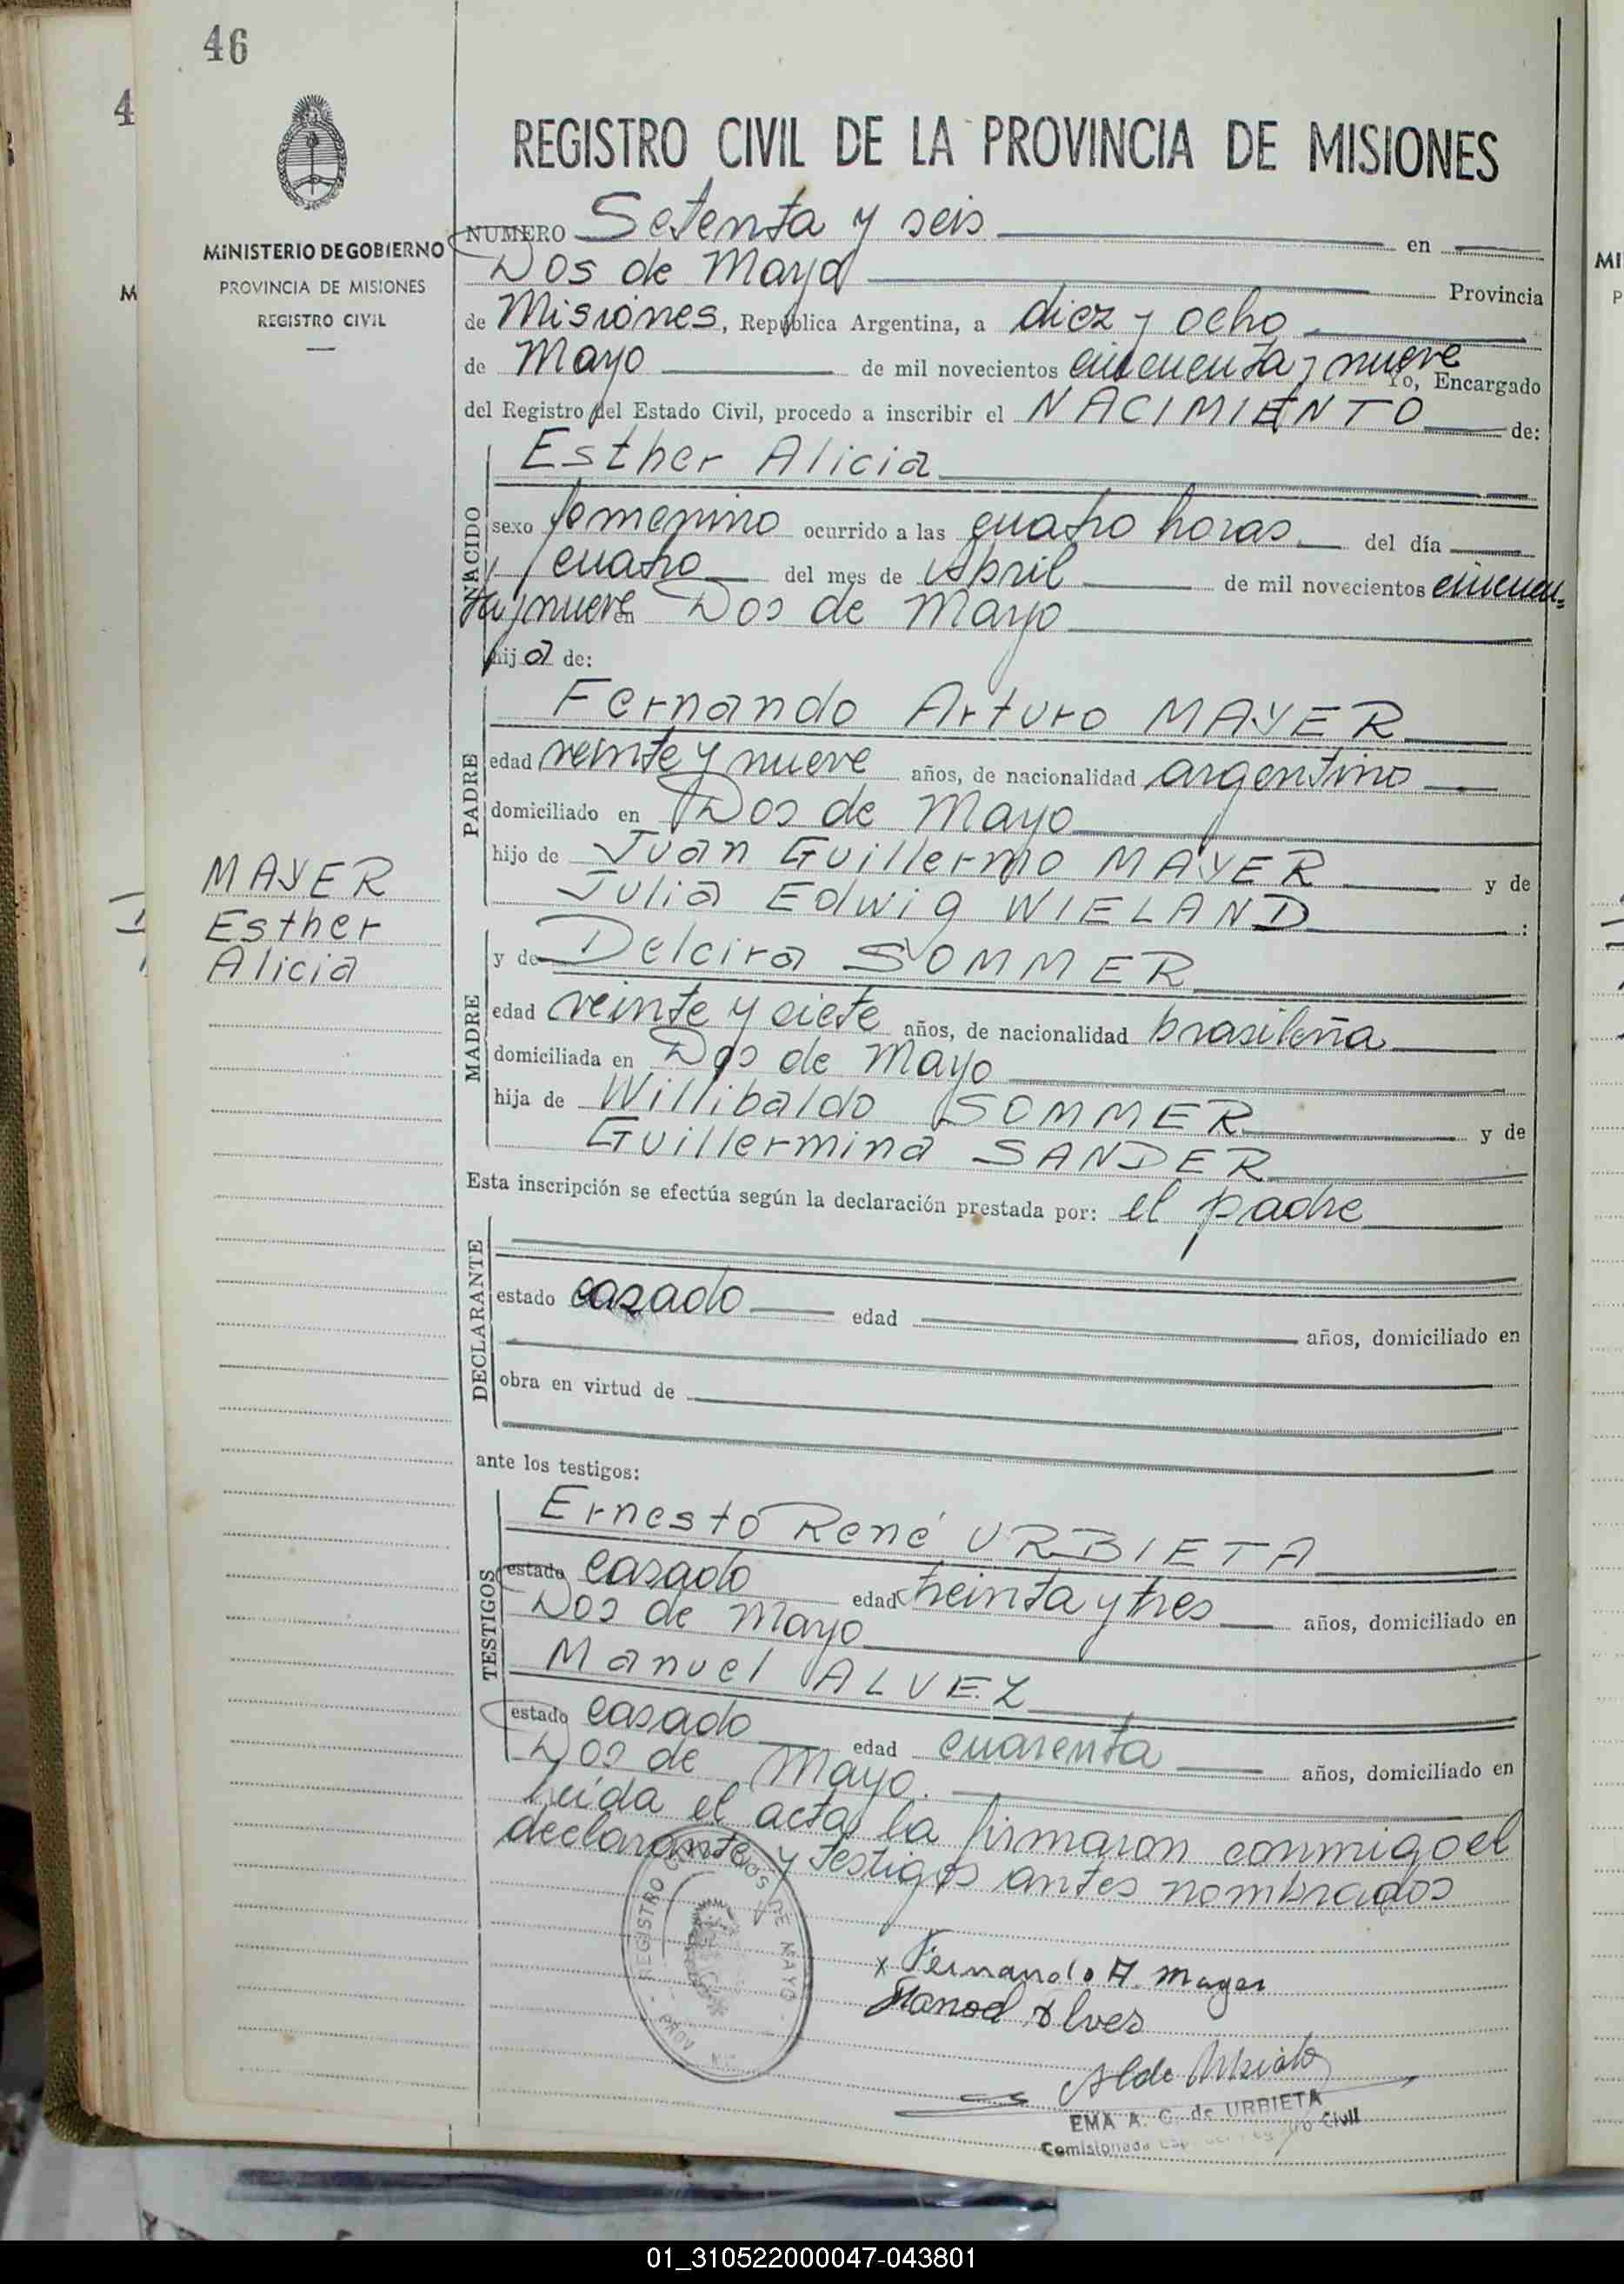 46
4
MINISTERIO DE GOBIERNO
PROVINCIA DE MISIONES
REGISTRO CIVIL
REGISTRO CIVIL DE LA PROVINCIA DE MISIONES
NUMERO Setenta y seis en
Dos de Mayo Provincia
de Misiones, República Argentina, a diez y ocho
de Mayo de mil novecientos cincuenta y nueve Yo, Encargado
del Registro del Estado Civil, procedo a inscribir el NACIMIENTO de:
NACIDO
Esther Alicia
sexo femenino ocurrido a las cuatro horas del día
cuatro del mes de Abril de mil novecientos cincuen=
ta y nueve en Dos de Mayo
hija de:
PADRE
Fernando Arturo MAYER
edad veinte y nueve años, de nacionalidad argentino
domiciliado en Dos de Mayo
hijo de Juan Guillermo MAYER y de
Julia Edwig WIELAND :
MAYER
Esther
Alicia
MADRE
y de Delcira SOMMER
edad veinte y siete años, de nacionalidad brasileña
domiciliada en Dos de Mayo
hija de Willibaldo SOMMER y de
Guillermina SANDER
Esta inscripción se efectúa según la declaración prestada por: el padre
DECLARANTE
estado casado edad años, domiciliado en
obra en virtud de
ante los testigos:
TESTIGOS
Ernesto René URBIETA
estado casado edad treinta y tres años, domiciliado en
Dos de Mayo
Manuel ALVEZ
estado casado edad cuarenta años, domiciliado en
Dos de Mayo.
Leída el acta, la firmaron conmigo el
declarante y testigos antes nombrados
REGISTRO DOS DE MAYO
PROV
x Fernando A. Mayer
Manoel Alves
EMA A. C. de URBIETA
Comisionada Registro Civil
01_310522000047-043801